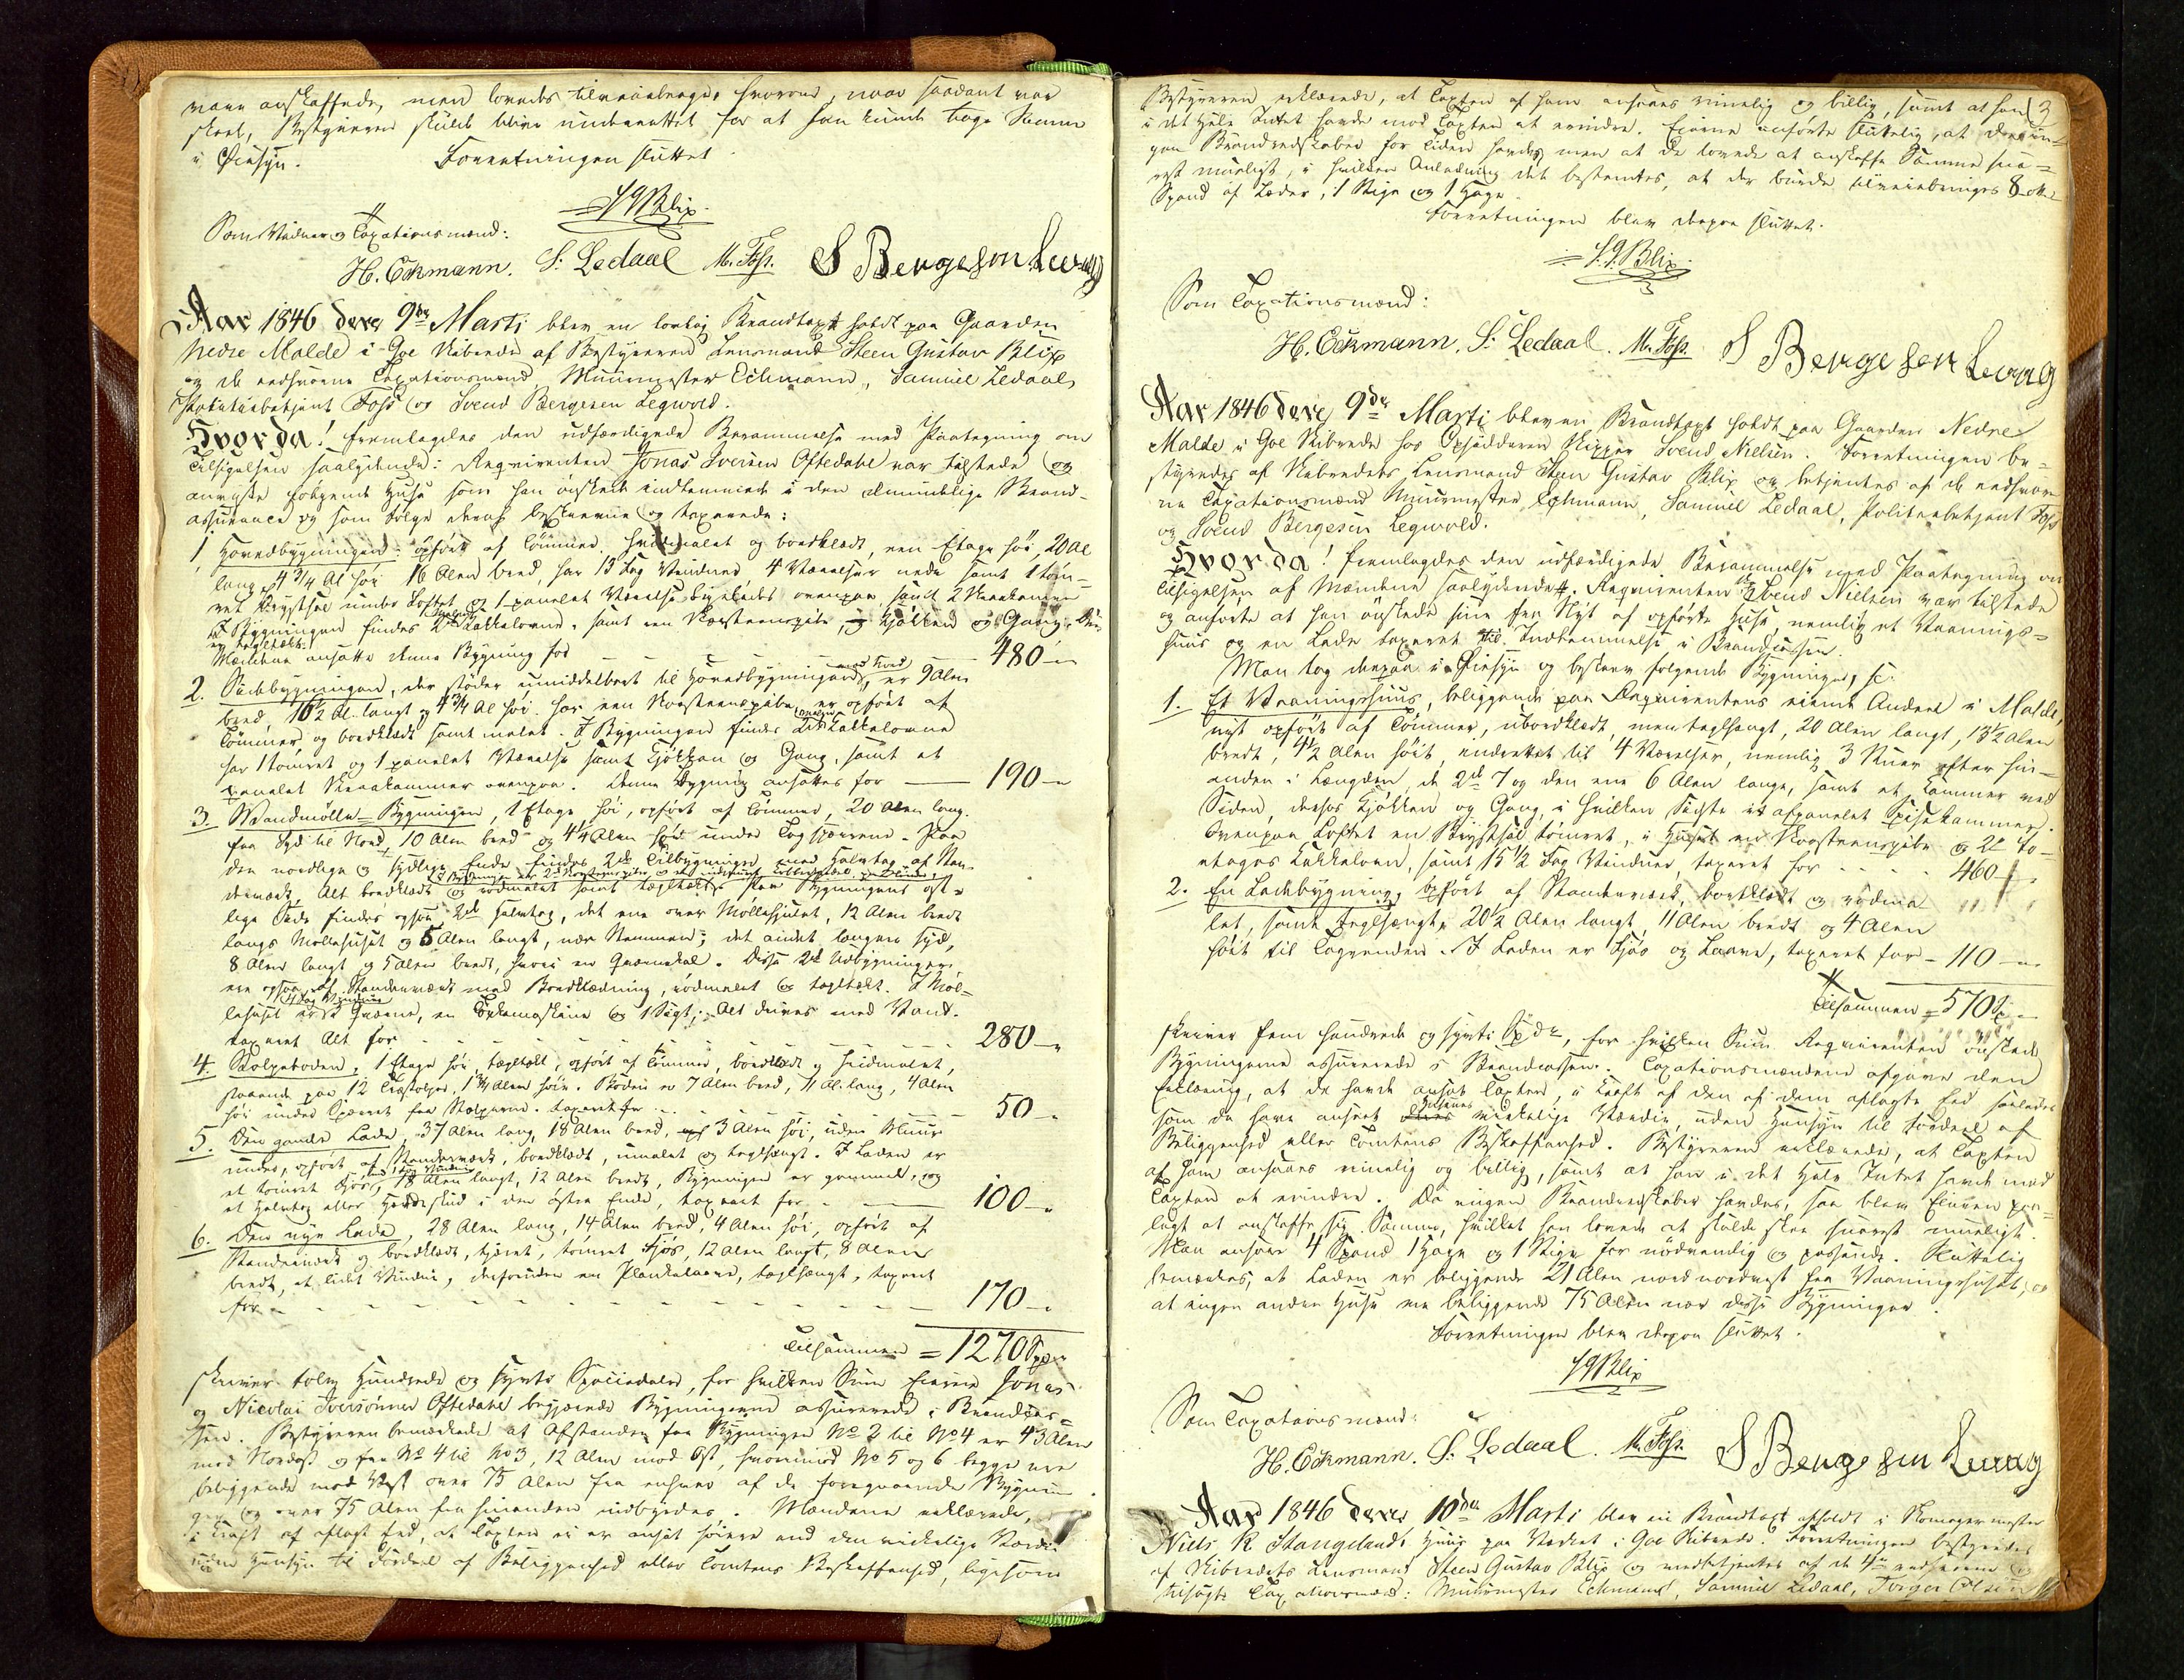 vare anskaffede, men lovedes tilveiebragte, hvorom, naar saadant var
skeet, Bestyreren skulde blive underrettet for at han kunde tage Samme
i Øiesyn. Forretningen sluttet.
SGBlix.
Som Vidner og Taxationsmænd:
H. Eckmann. S: Ledaal M. Foss. S Bergeson
Aar 1846 den 9de Marti blev en lovlig Brandtaxt holdt paa Gaarden
Nedre Malde i Goe Skibrede af Bestyreren Lensmand Steen Gustav Blix
og de eedsvorne Taxationsmænd Muurmester Eckmann, Samuel Ledaal,
Politiebetjent Foss og Svend Bergesen Legwold.
Hvorda! fremlagdes den udfærdigede Berammelse med Paategning om
Tilsigelsen saalydende: Reqvirenten Jonas Iversen Oftedahl var tilstede og
anviiste følgende Huse som han ønskede indlemmede i den almindelige Brand-
assurance og som bleve derpaa beskrevne og taxerede:
1 Hovedbygningen: opført af Tømmer, hvidmalet og bordklædt, een Etage høi, 20 Al
lang, 4 3/4 Al høi 16 Alen bred, har 13 Fag Vinduer 4 Værelser nede samt 1 tøm-
ret Qvistsal under Loftet og 1 panelet Værelse ovenpaa, samt 2 Skraakamre
I Bygningen findes 2de Kakkelovne, samt een Skorsteenspibe, og Kjøkken og Gang. Den
er teglhængt.
Mændene ansatte denne Bygning for 480 –
2. Sidebygningen, der støder umiddelbart til Hovedbygningens mod Nord, er 9 Alen
bred, 16½ Al. langt og 4 3/4 Al høi. har een Skorsteenspibe, er opført af
Tømmer og bordklædt samt malet. I Bygningen findes Kakkelovne
har 1 tømret og 1 panelet Værelse samt Kjøkken og Gang, samt et
panelet Skraakammer ovenpaa. Denne Bygning ansattes for 190 –
3. Vandmølle-Bygningen, 1 Etage høi, opført af Tømmer, 20 Alen lang
fra Syd til Nord, 10 Alen bred og 4¼ Alen høi under Tagspærrene. Paa
den nordlige og sydlige Ende findes 2de Tilbygninger med Halvtag af Sten-
derværk, Alt bordklædt og rødmalet samt teglhængt. Paa Bygningens øst-
lige Side findes ogsaa 2de Halvtag, det ene over Møllehjulet, 12 Alen bredt
langs Møllehuset og 5 Alen langt, nær Stemmen; det andet længere syd,
8 Alen langt og 5 Alen bredt, hvori er Qvernekal. Disse 2de Udbygninger
ere opsatte af Stenderværk med Bordklædning, rødmalet og teglhængt. I Møl-
4 Fag Vinduer
lehuset er 2 Qværne, en Toskemaskine og 1 Sigt; Alt drives med Vand.
taxeret Alt for 280 –
4. Stolpeboden, 1 Etage høi, teglhængt, opført af Tømmer, bordklædt og hvidmalet,
staaende paa 12 Træstolper, 1 3/4 Alen høie. Boden er 7 Alen bred, 11 Al. lang, 4 Alen
høi under Spærret fra Stolperne. taxeret for 50 –
5. Den gamle Lade, 37 Alen lang, 18 Alen bred, 3 Alen høi, uden Muur
under, opført af Stenderværk, bordklædt, umalet og teglhængt. I Laden er
et tømret Fjøs, 18 Alen langt, 12 Alen bredt, Bygningen er gammel, og
et Halvtag eller Hestestald i den østre Ende, taxeret for 100 –
6. Den nye Lade, 28 Alen lang, 14 Alen bred, 4 Alen høi, opført af
Stenderværk og bordklædt, tjæret, tømret Fjøs, 12 Alen langt, 8 Alen
bredt, et lidet Vindue, desforuden en Plankelaave, teglhængt, taxeret
for 170 –
Tilsammen = 1270 Spd
skriver tolv Hundrede og syvti Speciedaler, for hvilken Sum Eierne Jonas
og Nicolai Iversønner Oftedahl begjærede Bygningerne assurerede i Brandcas-
sen. Bestyreren bemærkede at Afstanden fra Bygningen No 2 til No 4 er 43 Alen
mod Nordost og fra No 4 til No 3, 12 Alen mod Ost, hvorimod No 5 og 6 begge ere
beliggende mod Vest over 75 Alen fra enhver af de foregaaende Bygnin
ger og over 75 Alen fra hinanden indbyrdes. Mændene erklærede,
i Kraft af aflagt Eed, at Taxten ei er ansat høiere end den virkelige Værdie
uden Hensyn til Fordeel af Beliggenhed eller Tomtens Beskaffenhed, ligesom
3
Bestyreren erklærede, at Taxten af ham ansaaes rimelig og billig, samt at han
i det Hele Intet havde mod Taxten at erindre. Eierne anførte sluttelig, at der in-
gen Brandredskaber for Tiden havdes, men at de lovede at anskaffe Samme sna-
rest mueligt, i hvilken Anledning det bestemtes, at der burde tilveiebringes 8 otte
Spand af Læder, 1 Stige og 1 Hage.
Forretningen blev derpaa sluttet.
S.G.Blix.
Som Taxationsmænd:
H. Eckmann. S: Ledaal. M. Foss. S Bergeson
Aar 1846 den 9de Marti blev en Brandtaxt holdt paa Gaarden Nedre
Malde i Goe Skibrede hos Opsidderen Skipper Svend Nielsen. Forretningen be-
styredes af Skibredets Lensmand Steen Gustav Blix og betjentes af de eedsvor-
ne Taxationsmænd Muurmester Eckmann, Samuel Ledaal, Politiebetjent Foss
og Svend Bergesen Legwold.
Hvorda! fremlagdes den udfærdigede Berammelse med Paategning om
Tilsigelsen af Mændene saalydende. Reqvirenten Svend Nielsen var tilstede
og anførte at han ønskede sine her Nyt af opførte Huse, nemlig et Vaanings-
huus og en Lade taxeret til Indlemmelse i Brandcassen.
Man tog derpaa i Øiesyn og beskrev følgende Bygninger, sc.
1. Et Vaaningshuus, beliggende paa Reqvirentens eiende Andeel i Malde,
nyt opført af Tømmer, ubordklædt, men teglhængt, 20 Alen langt, 13½ Alen
bredt, 4½ Alen høit, indrettet til 4 Værelser, nemlig 3 Stuer efter hin-
anden i Længden, de 2de 7 og den ene 6 Alen lange, samt et Kammer ved
Siden, desfor Kjøkken og Gang, i hvilken Sidste et afpanelet Spisekammer.
Ovenpaa Loftet en Qvistsal tømret, i Huset een Skorsteenspibe og 2de to-
etages Kakkelovn, samt 15½ Fag Vinduer, taxeret for 460
2. En Ladebygning, opført af Stenderværk, bordklædt og rødma
let, samt teglhængt, 20½ Alen langt, 11 Alen bredt og 4 Alen
høit til Tagrenden. I Laden er Fjøs og Laave, taxeret for 110 –
Tilsammen = 570 Sp
skriver fem hundrede og syvti Spdr, for hvilken Sum Reqvirenten ønskede
Bygningerne assurerede i Brandcassen. Taxationsmændene afgave den
Erklæring, at de havde ansat Taxten, i Kraft af den af dem aflagte Eed saaledes
som de have anseet Husenes virkelige Værdie, uden Hensyn til Fordeel af
Beliggenhed eller Tomtens Beskaffenhed. Bestyreren erklærede, at Taxten
af ham ansaaes rimelig og billig, samt at han i det Hele Intet havde mod
Taxten at erindre. Da ingen Brandredskaber havdes, saa blev Eieren paa-
lagt at anskaffe sig Samme, hvilket han lovede at skulde skee snarest mueligt.
Man ansaae 4 Spand 1 Hage og 1 Stige for nødvendig og passende. Sluttelig
bemærkes, at Laden er beliggende 21 Alen nord nordvest fra Vaaningshuset, og
at ingen andre Huse ere beliggende 75 Alen nær disse Bygninger.
Forretningen blev derpaa sluttet.
SGBlix
Som Taxationsmænd:
H. Eckmann. S: Ledaal. M. Foss. S Bergeson
Aar 1846 den 10de Marti blev en Brandtaxt afholdt i Skomagermester
Niels R Stangelands Huus paa Verket i Goe Skibrede. Forretningen bestyredes
af Skibredets Lensmand Steen Gustav Blix og medbetjentes af de 4re eedsvorne og
tilsagte Taxationsmænd: Muurmester Eckmann, Samuel Ledaal, Torger Olsen